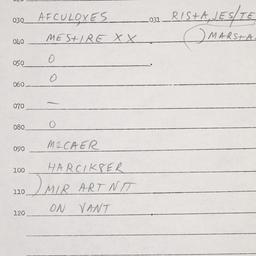 030 AFCULOXES 031 RISTA, JES/TE
040 MESTIRE XX MARSTA
050 O
060 O
070 —
080 O
090 MICAER
100 HARCIKPER
110 MIR ART NTT
120 ON VANT